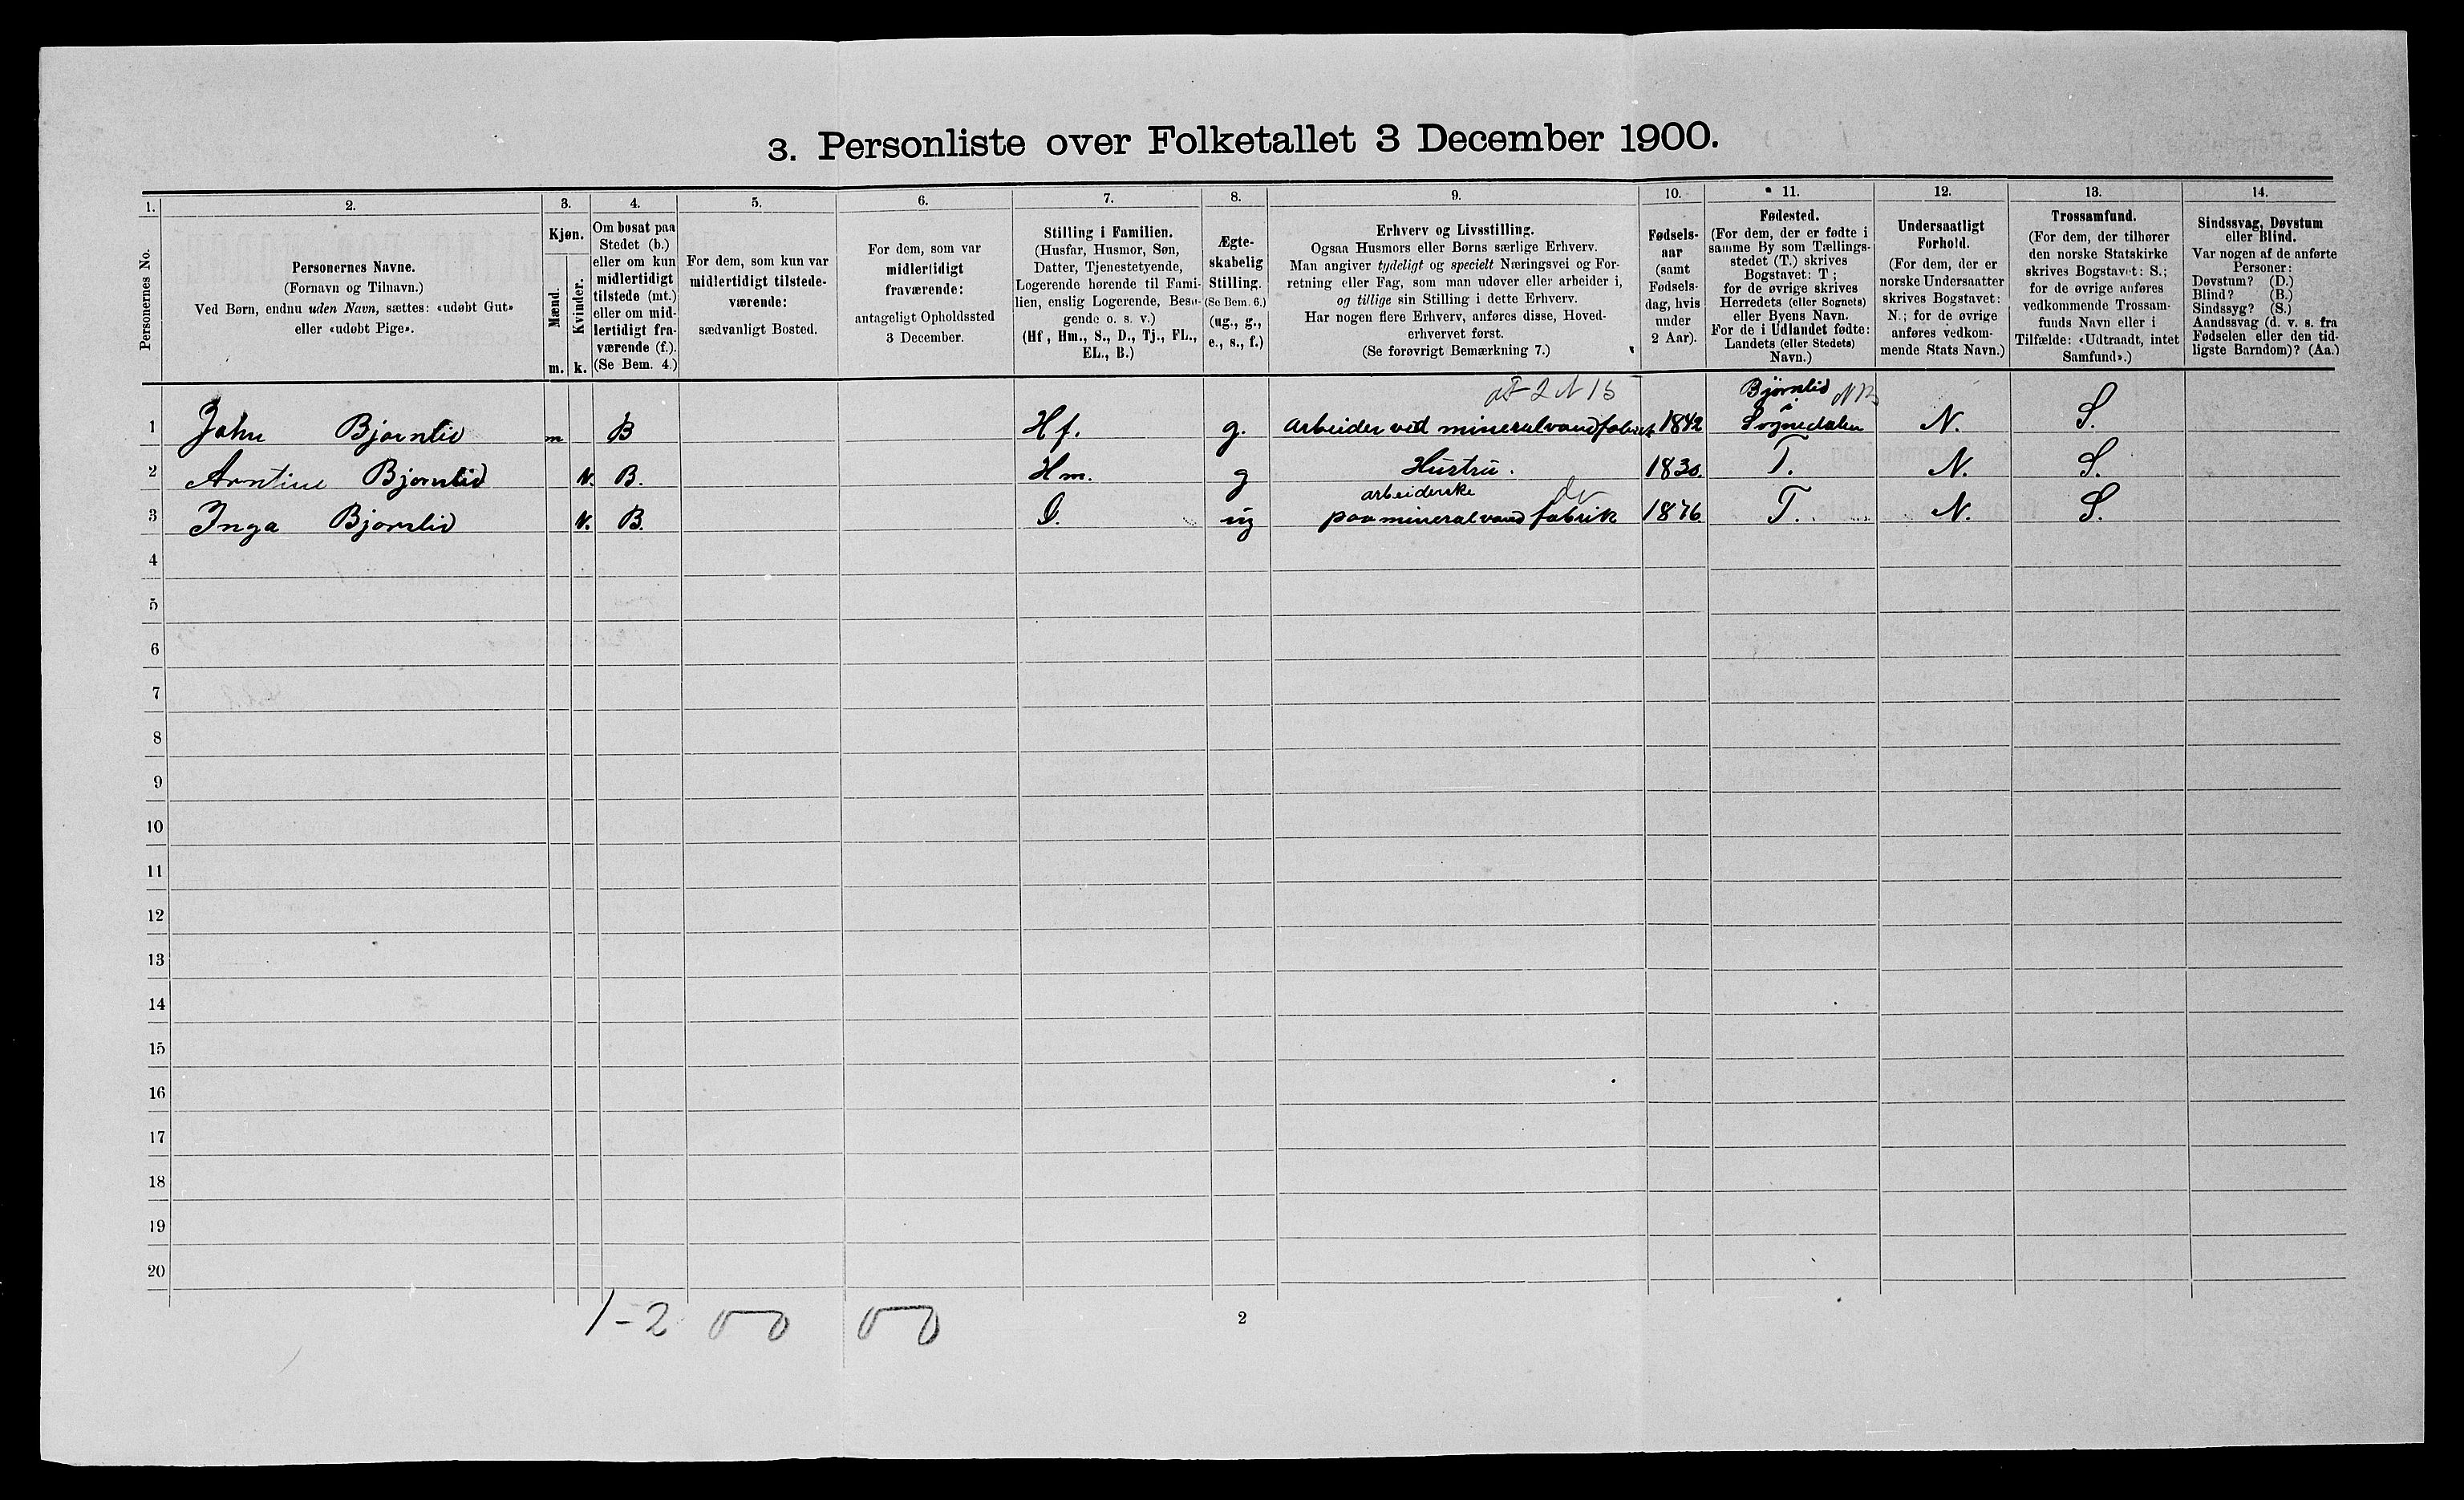 3. Personliste over Folketallet 3 December 1900.
1. 2. 3. 4. 5. 6. 7. 8. 9. 10. 11. 12. 13. 14.
Personernes No.
Personernes Navne.
(Fornavn og Tilnavn.)
Ved Børn, endnu uden Navn, sættes: «udøbt Gut»
eller «udøbt Pige».
Kjøn.
Mænd.
Kvinder.
m. k.
Om bosat paa
Stedet (b.)
eller om kun
midlertidigt
tilstede (mt.)
eller om mid-
lertidigt fra-
værende (f.).
(Se Bem. 4.)
For dem, som kun var
midlertidigt tilstede-
værende:
sædvanligt Bosted.
For dem, som var
midlertidigt
fraværende:
antageligt Opholdssted
3 December.
Stilling i Familien.
(Husfar, Husmor, Søn,
Datter, Tjenestetyende,
Logerende hørende til Fami-
lien, enslig Logerende, Besø-
gende o. s. v.)
(Hf, Hm., S., D., Tj., FL.,
EL., B.)
Ægte-
skabelig
Stilling.
(Se Bem. 6.)
(ug., g.,
e., s., f.)
Erhverv og Livsstilling.
Ogsaa Husmors eller Børns særlige Erhverv.
Man angiver tydeligt og specielt Næringsvei og For-
retning eller Fag, som man udøver eller arbeider i,
og tillige sin Stilling i dette Erhverv.
Har nogen flere Erhverv, anføres disse, Hoved-
erhvervet først.
(Se forøvrigt Bemærkning 7.)
Fødsels-
aar
(samt
Fødsels-
dag, hvis
under
2 Aar).
Fødested.
(For dem, der er fødte i
samme By som Tællings-
stedet (T.) skrives
Bogstavet: T;
for de øvrige skrives
Herredets (eller Sognets)
eller Byens Navn.
For de i Udlandet fødte:
Landets (eller Stedets)
Navn.)
Undersaatligt
Forhold.
(For dem, der er
norske Undersaatter
skrives Bogstavet:
N.; for de øvrige
anføres vedkom-
mende Stats Navn.)
Trossamfund.
(For dem, der tilhører
den norske Statskirke
skrives Bogstavet: S.;
for de øvrige anføres
vedkommende Trossam-
funds Navn eller i
Tilfælde: «Udtraadt, intet
Samfund».)
Sindssvag, Døvstum
eller Blind.
Var nogen af de anførte
Personer:
Døvstum? (D.)
Blind? (B.)
Sindssyg? (S.)
Aandssvag (d. v. s. fra
Fødselen eller den tid-
ligste Barndom)? (Aa.)
Bjørnlid
1 John Bjørnlid m B Hf. g. arbeider ved mineralvandfabrik 1842 Sognedalen N. S.
2 Arntine Bjornlid K. B. Hm. g Hustru. 1830. T. N. S.
arbeiderske
3 Inga Bjørnlid K. B. D. ug paa mineralvand fabrik 1876. T. N. S.
4
5
6
7
8
9
10
11
12
13
14
15
16
17
18
19
20
1-2 0-0 0-0
2